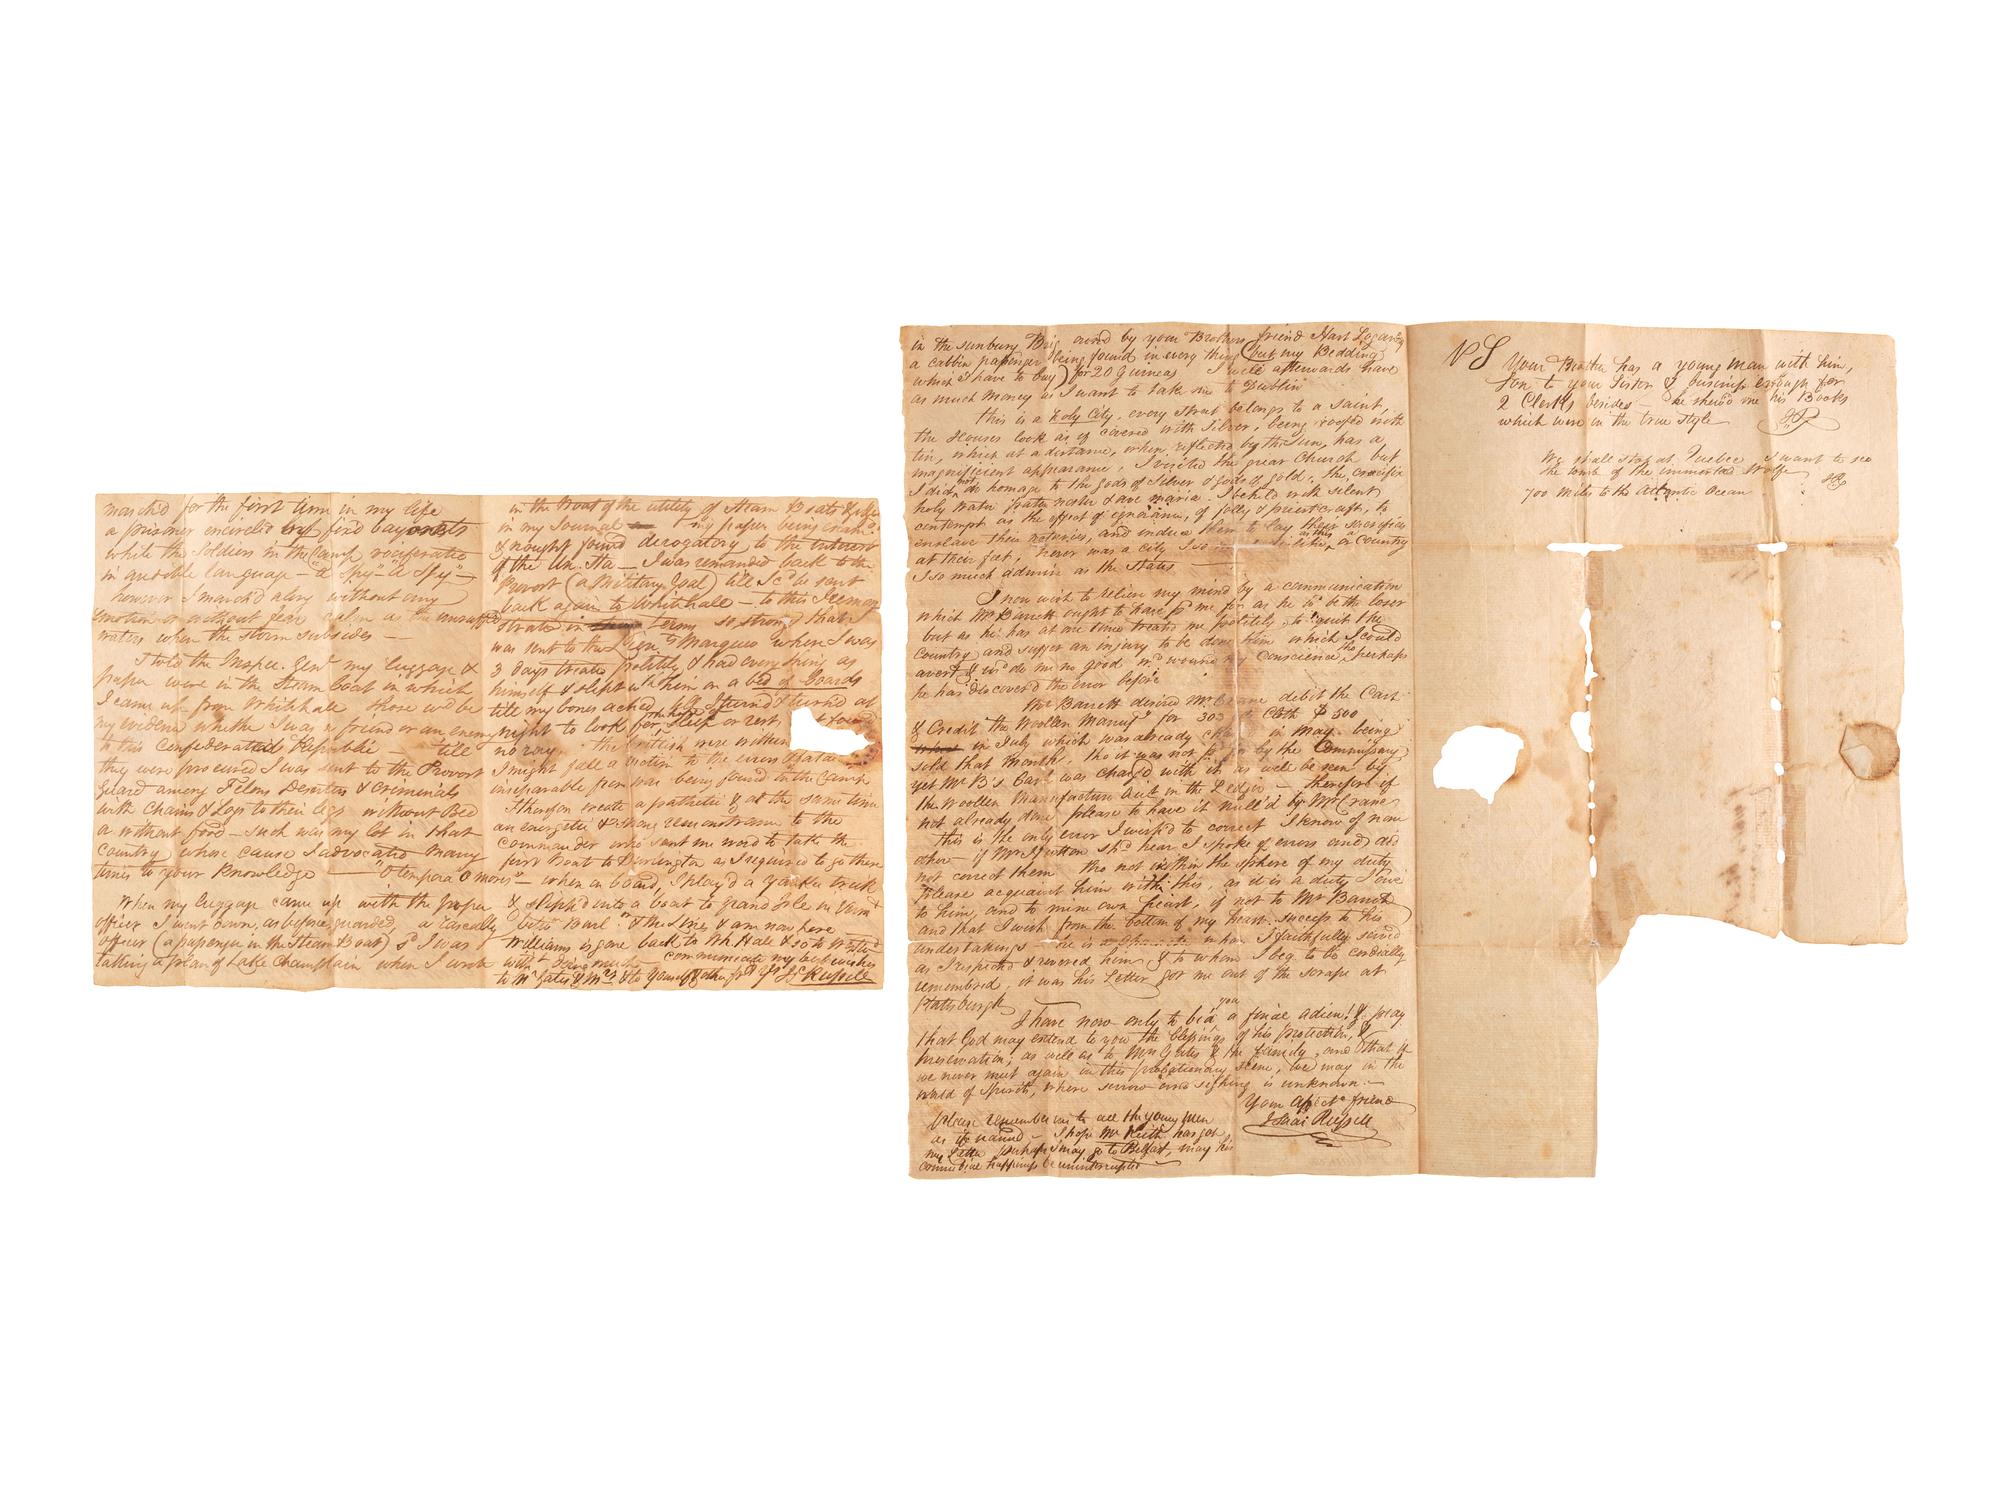 march'd for the first time in my life
a prisoner encircled by fix'd bayonets
while the Soldiers in the Camp vociferated
in audible language — "a Spy" "a Spy" —
however I march'd along without any
emotion or without fear calm as the unruffled
waters when the storm subsides —
I told the Inspec. Genl my luggage &
papers were in the Steam boat in which
I came up from Whitehall those wod be
my evidence whether I was a friend or an enemy
to this Confederated Republic — till
they were procured I was sent to the Provost
Guard among Felons Deserters & Criminals
with Chains & Logs to their legs without Bed
a without food — such was my lot in that
Country whose cause I advocated many
times to your knowledge — O tempora O mores" —
When my luggage came up with the proper
officer I went down, as before, guarded, a rascally
officer (a passenger in the Steam Boat) sd I was
taking a plan of Lake Champlain when I wrote
in the Boat of the utility of Steam Boats &
in my Journal my paper being
& nought found derogatory to the interest
of the Un. Sta — I was remanded back to the
Provost (a Military Goal) till I cd be sent
back again to Whitehall — to this I remon
strated in terms so strong that I
was sent to the Genls Marquee when I was
3 days treated politely & had every thing as
himself & slept with him on a bed of boards
till my bones ached I turn'd & turn'd at
night to look for the side of Sleep or rest, & found
no ray. the British were within
I might fall a victim to the
inseparable from war being found in the Camp
I therefore create a pathetic & at the same time
an energetic & strong remonstrance to the
commander who sent me word to take the
first Boat to Burlington as I required to go there
when on board, I play'd a yankee trick
& slipp'd into a boat to Grand Isle in Vermt
& the Lines & am now here
Williams is gone back to Wh. Hall &
with communicate my best wishes
to Mr Gates & Mrs & to yourself Is Russell
in the sunbury Brig and by your Brothers friend Hart Logan
a cabbin passenger being found in every thing (but my Bedding
which I have to buy) for 20 Guineas I will afterwards have
as much money as I want to take me to Dublin
This is a Holy City, every street belongs to a saint,
the Houses look as if covered with Silver, being roofed with
tin, which at a distance, when reflected by the Sun, has a
magnificient appearance, I visited the great Church but
I did not do homage to the gods of Silver & gods of gold, the crucifix
holy water pater noster & ave maria. I beheld with silent
contempt as the effect of ignorance, of folly & priestcraft, to
enslave their votaries, and induce them to lay their sacrifices
at their feet, never was a city I so as this, or Country
I so much admire as the States —
I now wish to relieve my mind by a communication
which Mr Barrett ought to have for as he is to be the loser
but as he has at one time treated me politely, to quit the
Country and suffer an injury to be done him which I could
avert & wd do me no good nd wound my Conscience, tho perhaps
he has discover'd the error before
Mr Barrett desired Mr Crane debit the Cash
& Credit the Woollen Manufy for 303 Cloth $500
in July which was already in May being
sold that Month, tho it was not by the Commissary
yet Mr B's Cash was charged with it as will be seen by
the Woollen Manufacture Acct in the Ledger — therefore if
not already done please to have it null'd by Mr Crane
this is the only error I wish'd to correct I know of none
other — if Mr shd hear I spoke of errors and did
not correct them tho not within the sphere of my duty
Please acquaint him with this, as it is a duty I owe
to him, and to mine own heart, if not to Mr Barrett
and that I wish from the bottom of my heart success to his
undertakings whom I faithfully served
as I respected & revered him & to whom I beg to be cordially
remembred, it was his Letter got me out of the scrape at
Plattsburgh
I have now only to bid you a final adieu! & pray
that God may extend to you the blessings of his protection, &
preservation; as well as to Mrs Gates & the family, and that if
we never meet again in this probationary scene, we may in the
world of Spirits, where sorrow and sighing is unknown. —
Your affecte friend
Isaac Russell
please remember me to all the young Men
as if named — I hope Mr Keith has got
my Letter perhaps I may go to Belfast, may his
connubial happiness be uninterrupted —
PS Your Brother has a young man with him,
Son to your Sister & business enough for
2 Clerks besides — he shewd me his Books
which were in the true style IR
We shall stop at Quebec, I want to see
the tomb of the immortal Wolfe IR
700 miles to the Atlantic Ocean